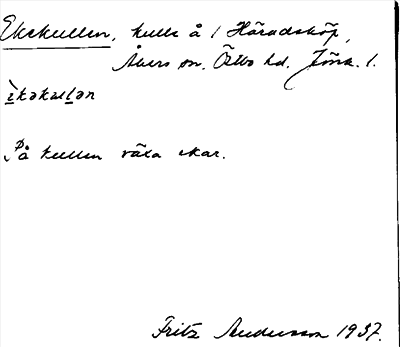 Ekekullen, kulle å 1 Häradsköp,
Åkers sn. Östbo hd. Jönk. l.
ìkəkulən
På kullen växa ekar.
Fritz Andersson 1937.